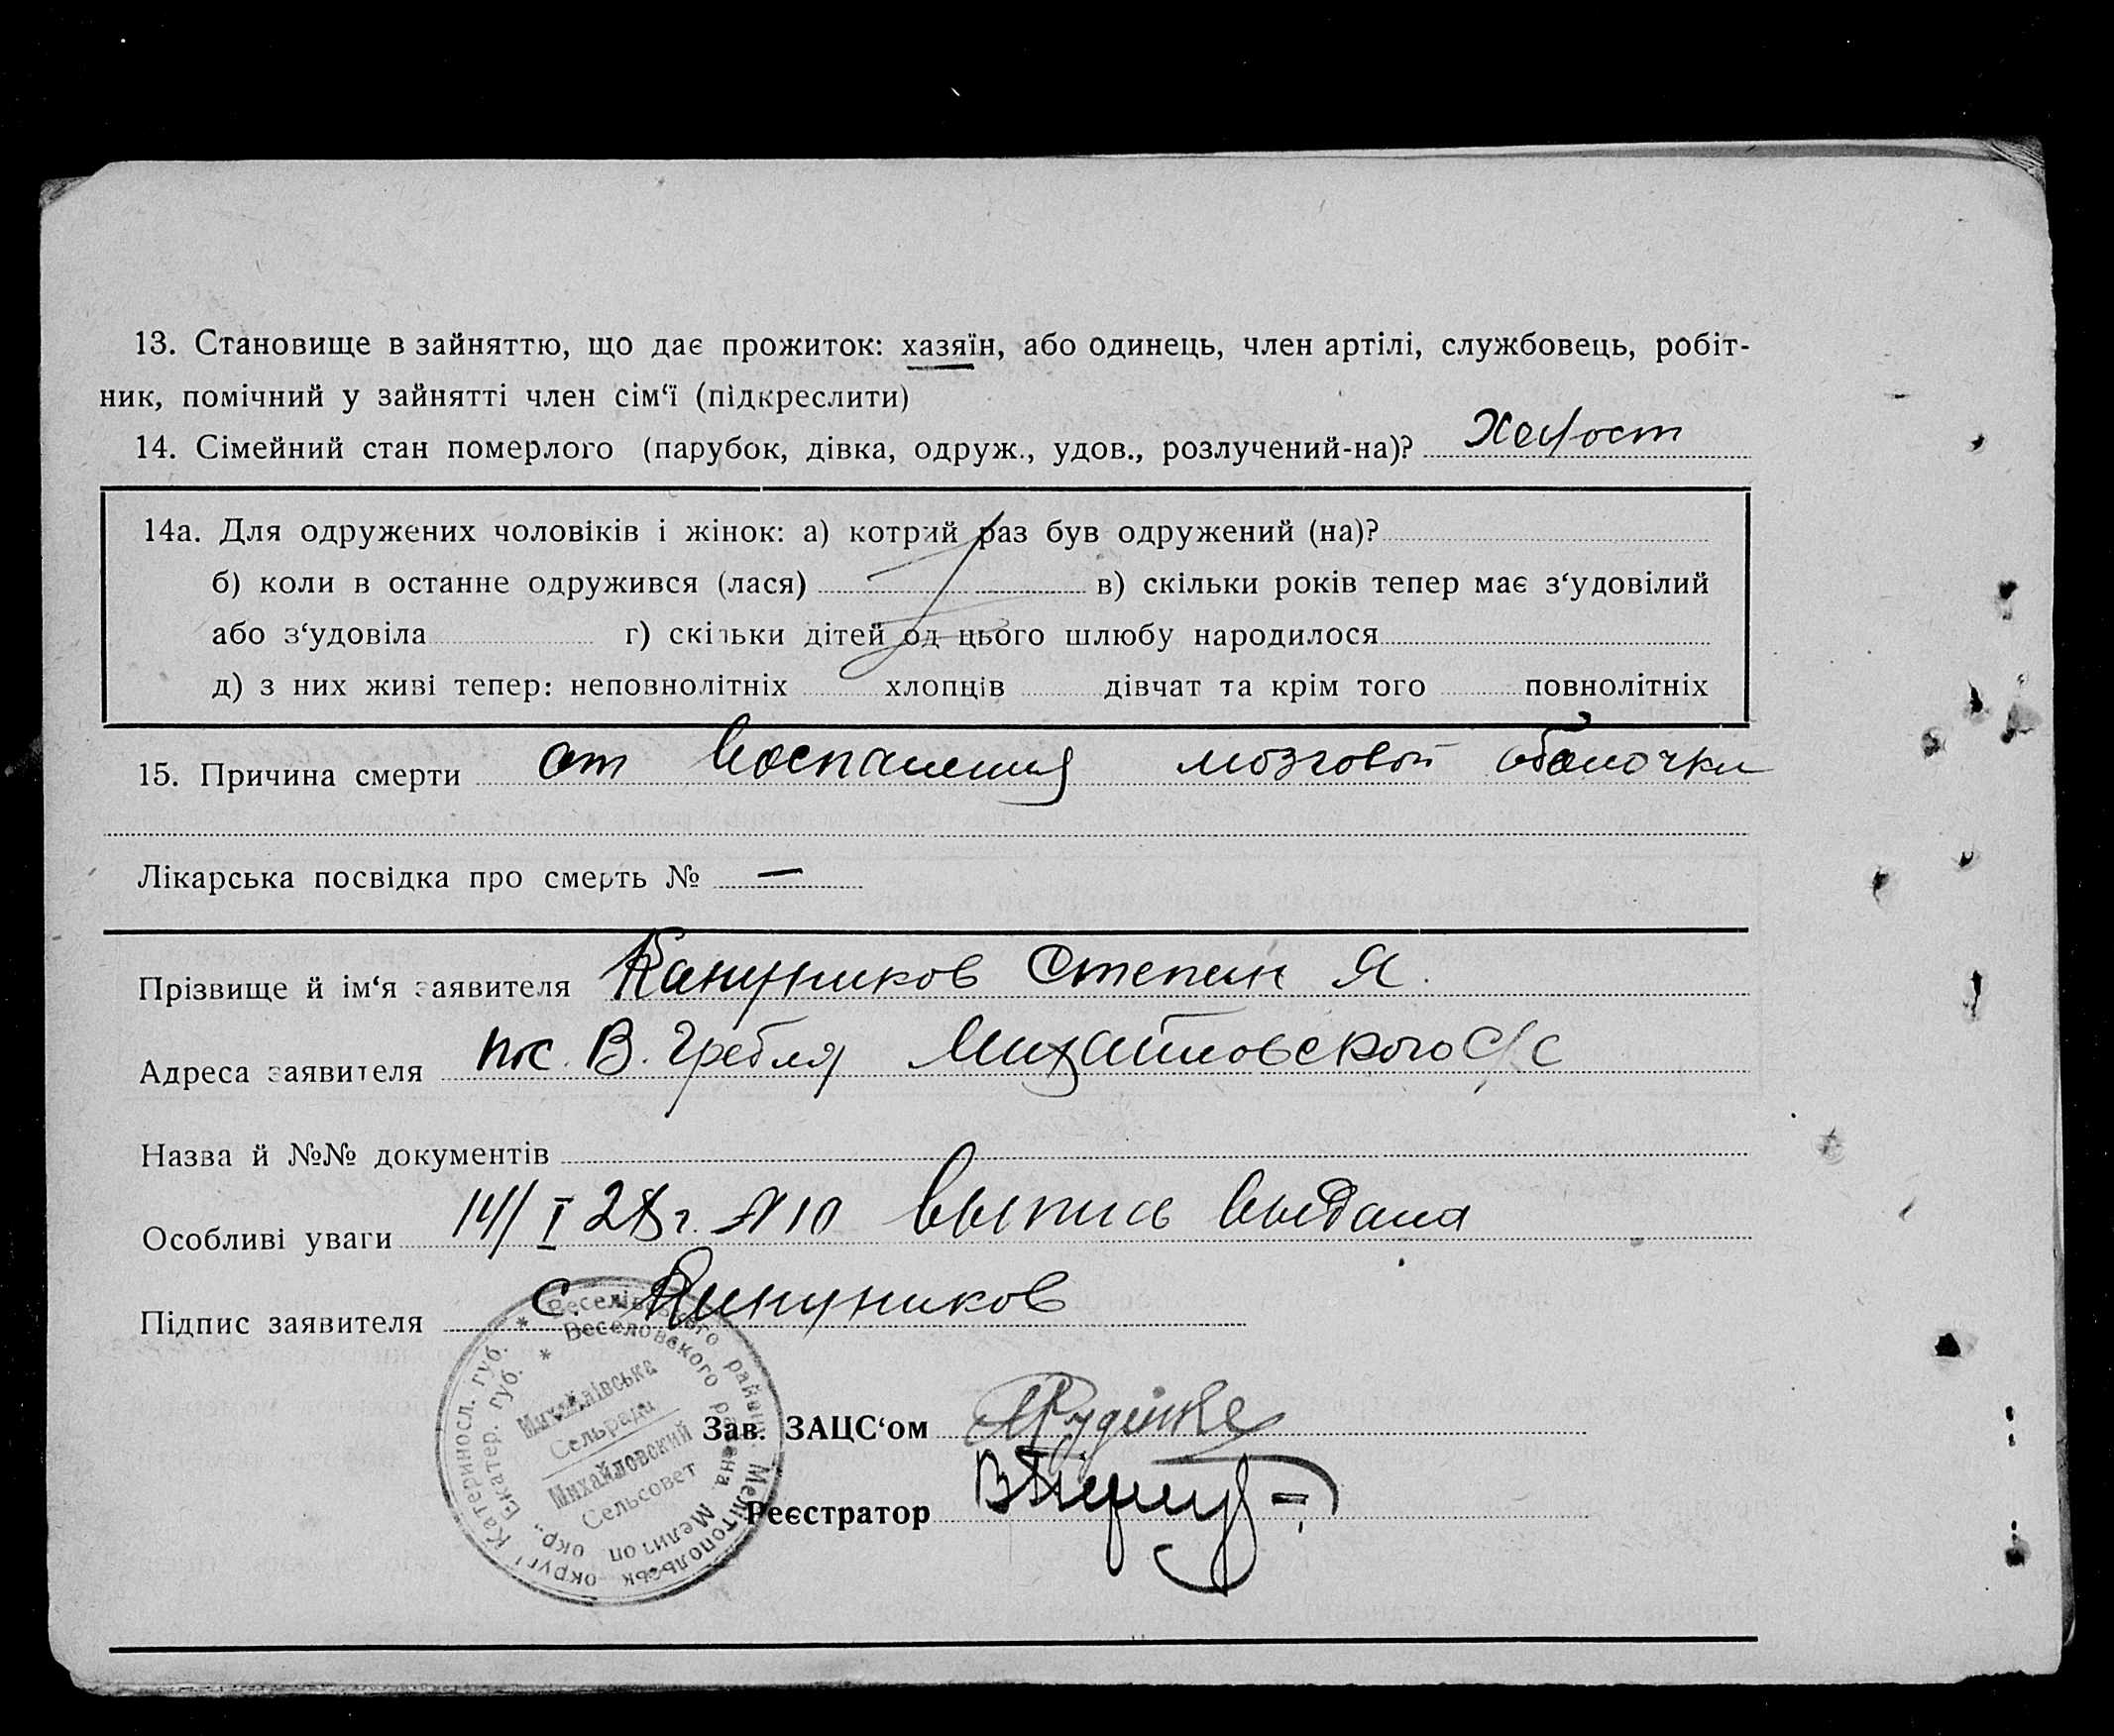 13. Становище в зайняттю, що дає прожиток: хазяїн, або одинець, член артілі, службовець, робіт-
ник, помічний у зайнятті член сім‘ї (підкреслити)
14. Сімейний стан померлого (парубок, дівка, одруж., удов., розлучений-на)? Холост
14а. Для одружених чоловіків і жінок: а) котрий раз був одружений (на)?
б) коли в останнє одружився (лася) в) скільки років тепер має з‘удовілий
або з‘удовіла г) скільки дітей од цього шлюбу народилося
д) з них живі тепер: неповнолітніх хлопців дівчат та крім того повнолітніх
15. Причина смерти от воспаления мозговой оболочки
Лікарська посвідка про смерть № —
Прізвище й ім‘я заявителя Канунников Степан Я.
Адреса заявителя пос. В. Гребля Михайловского С/С
Назва й №№ документів
Особливі уваги 14/I 28 г. №10 выпись выдана
Підпис заявителя С. Канунников
* Веселівського району Мелітопольськ округі Катеринносл. губ.
* Веселовского района Мелитоп окр., Екатер. губ.
Михайлівська
Сельрада
Михайловский
Сельсовет
Зав. ЗАЦС‘ом
Реєстратор